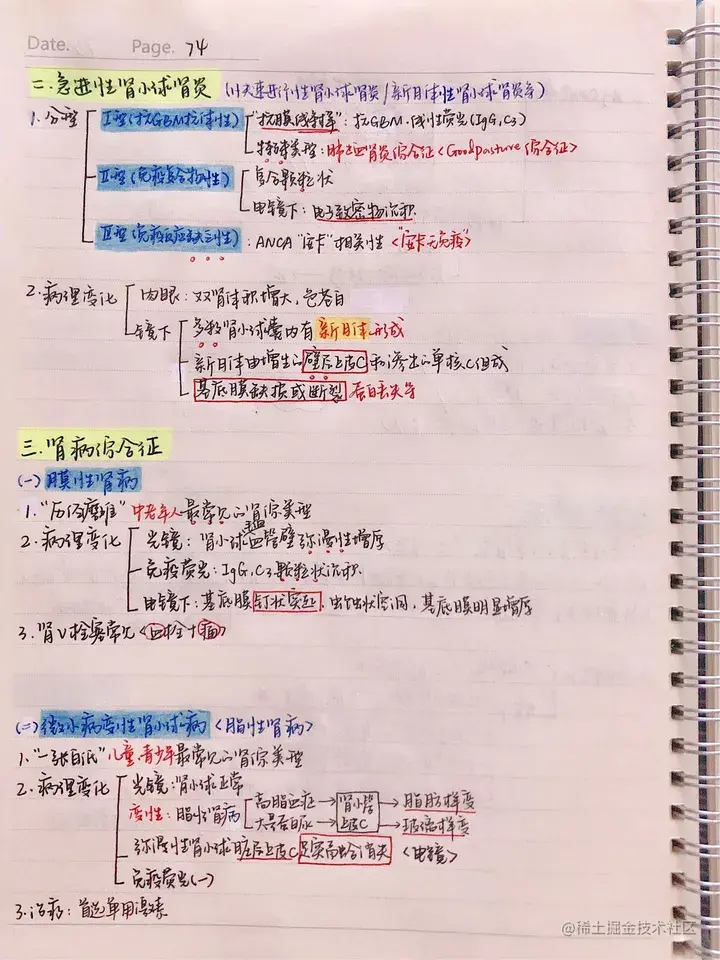 Date. Page. 74
二.急进性肾小球肾炎(快速进行性肾小球肾炎/新月体性肾小球肾炎)
1.分型 I型(抗GBM抗体性) "抗膜线制荧":抗GBM.线性荧光(IgG,C3)
特殊类型:肺出血肾炎综合征<Goodpasture综合征>
II型(免疫复合物性) 复合颗粒状
电镜下:电子致密物沉积.
III型(免疫反应缺乏性):ANCA"安卡"相关性<"安卡无免疫">
2.病理变化 肉眼:双肾体积增大,色苍白
镜下 多数肾小球囊内有新月体形成
新月体由增生的壁层上皮C和渗出的单核C组成
基底膜缺损或断裂 蛋白丢失
三.肾病综合征
(一)膜性肾病
1. 中老年人最常见的肾综类型
2.病理变化 光镜:肾小球毛细血管壁弥漫性增厚
免疫荧光:IgG,C3颗粒状沉积.
电镜下:基底膜钉状突起.虫蚀状空洞,基底膜明显增厚
3.肾V栓塞常见<血栓+面>
(二)微小病变性肾小球病<脂性肾病>
1."一张白纸"儿童.青少年最常见的肾综类型
2.病理变化 光镜:肾小球正常
变性:脂性肾病 高脂血症→肾小管→脂肪样变
大量蛋白尿→上皮C→玻璃样变
弥漫性肾小球脏层上皮C足突融合消失<电镜>
免疫荧光(-)
3.治疗:首选单用激素
@稀土掘金技术社区